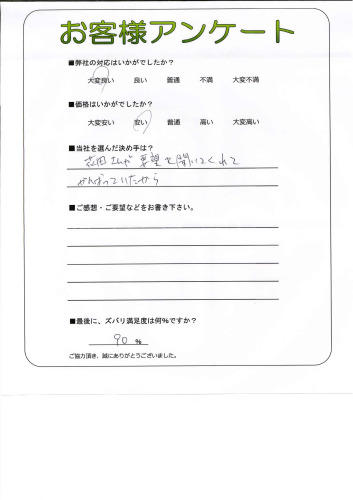 お客様アンケート
■弊社の対応はいかがでしたか?
大変良い 良い 普通 不満 大変不満
■価格はいかがでしたか?
大変安い 安い 普通 高い 大変高い
■当社を選んだ決め手は?
さんが要望を聞いてくれて
がんばっていたから
■ご感想・ご要望などをお書き下さい。
■最後に、ズバリ満足度は何%ですか?
90 %
ご協力頂き、誠にありがとうございました。